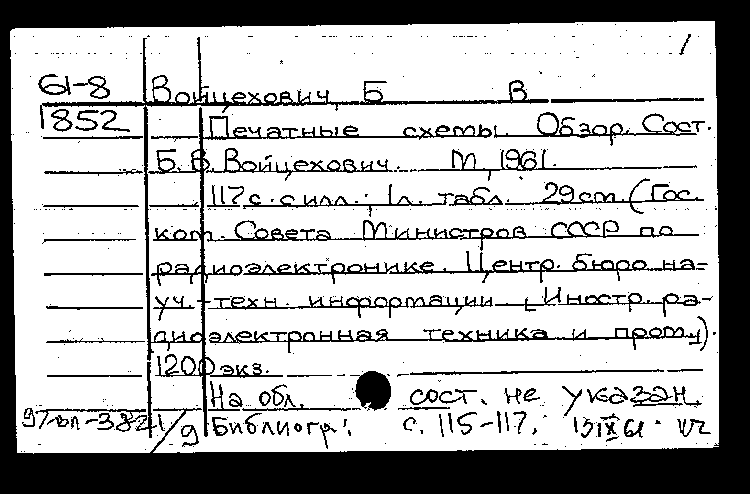 1
61-8 Войцехович, Б В
1852 Печатные схемы. Обзор. Сост.
Б. В. Войцехович. М, 1961.
117 с. с илл.; 1 л. табл. 29 cm. (Гос.
ком. Совета Министров СССР по
радиоэлектронике. Центр. бюро на-
уч.-техн. информации. Иностр. ра-
диоэлектронная техника и пром-).
1200 экз.
На обл. сост. не указан.
/9 Библиогр: с. 115-117.